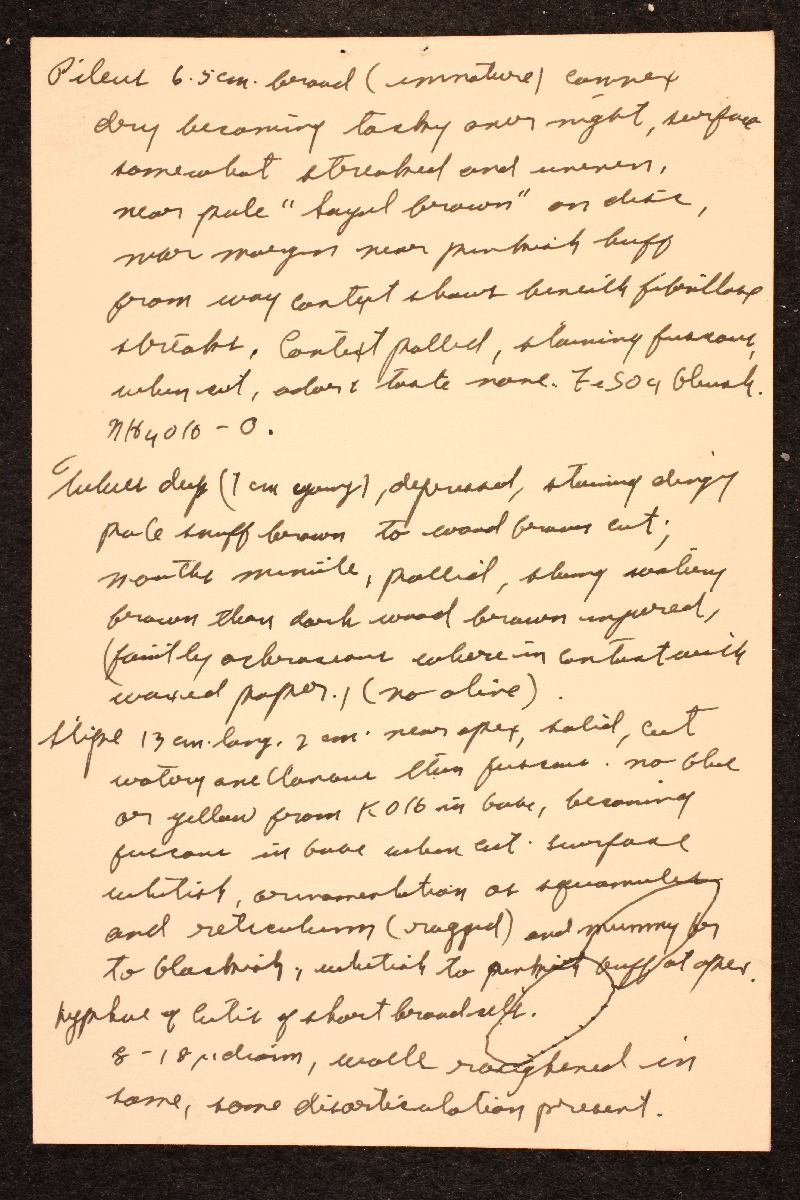 Pileus 6.5 cm. broad (immature) convex
dry becoming tacky over night, surface
somewhat streaked and uneven,
near pale "sayal brown" on disc,
near margin near pinkish buff
from way context shows beneath fibrillose
streaks. Context pallid, staining fuscous,
when cut, odor & taste none. FeSO4 bluish.
NH4OH - O.
Tubes deep (1 cm young), depressed, staining dingy
pale snuff brown to wood brown cut;
mouths minute, pallid, stung watery
brown then dark wood brown injured,
(faintly ochraceous where in contact with
waxed paper.) (no olive).
Stipe 13 cm. long. 2 cm. near apex, solid, cut
watery then fuscous. no blue
or yellow from KOH in base, becoming
fuscous in base when cut. surface
whitish, ornamentation as squamules
and reticulum (ragged) and mummy br
to blackish, whitish to pinkish buff at apex.
hyphae of cutis of short broad cells.
8-18 µ diam, walls roughened in
some, some disarticulation present.